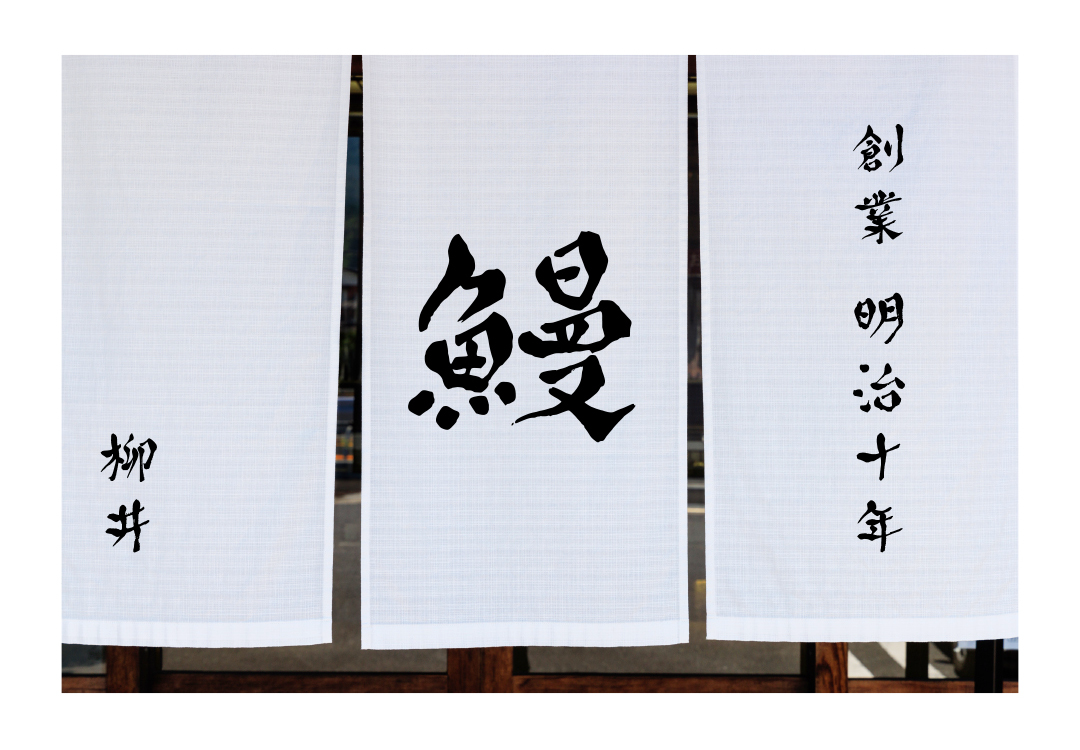 創業 明治十年
鰻
柳井